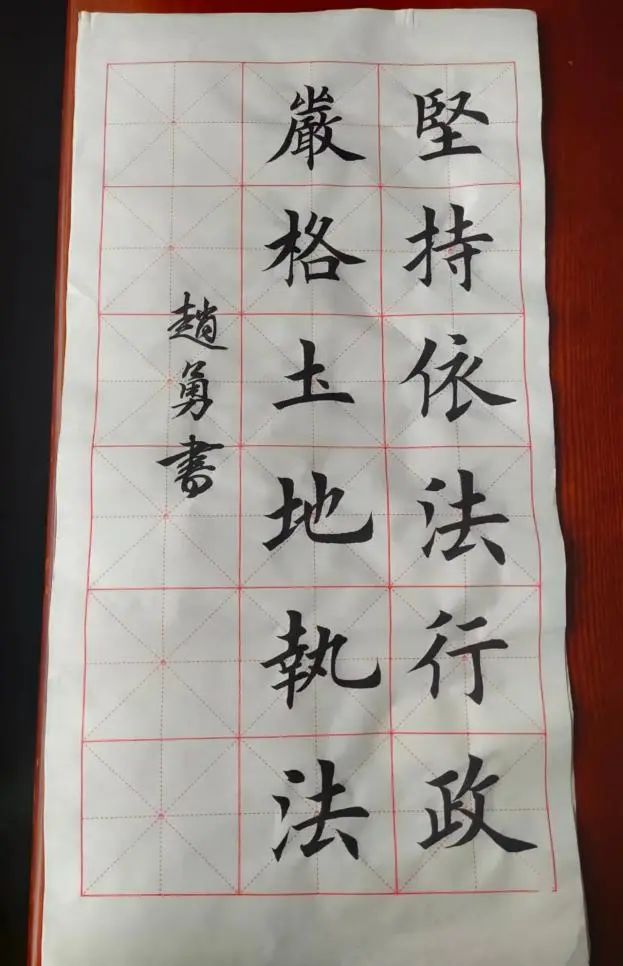 堅持依法行政
嚴格土地執法
趙勇書